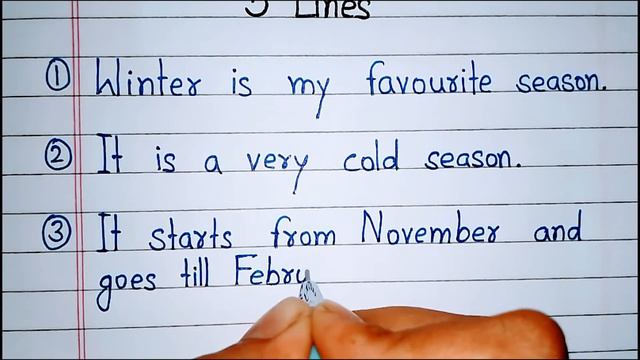 5 Lines
① Winter is my favourite season.
② It is a very cold season.
③ It starts from November and
goes till Febru